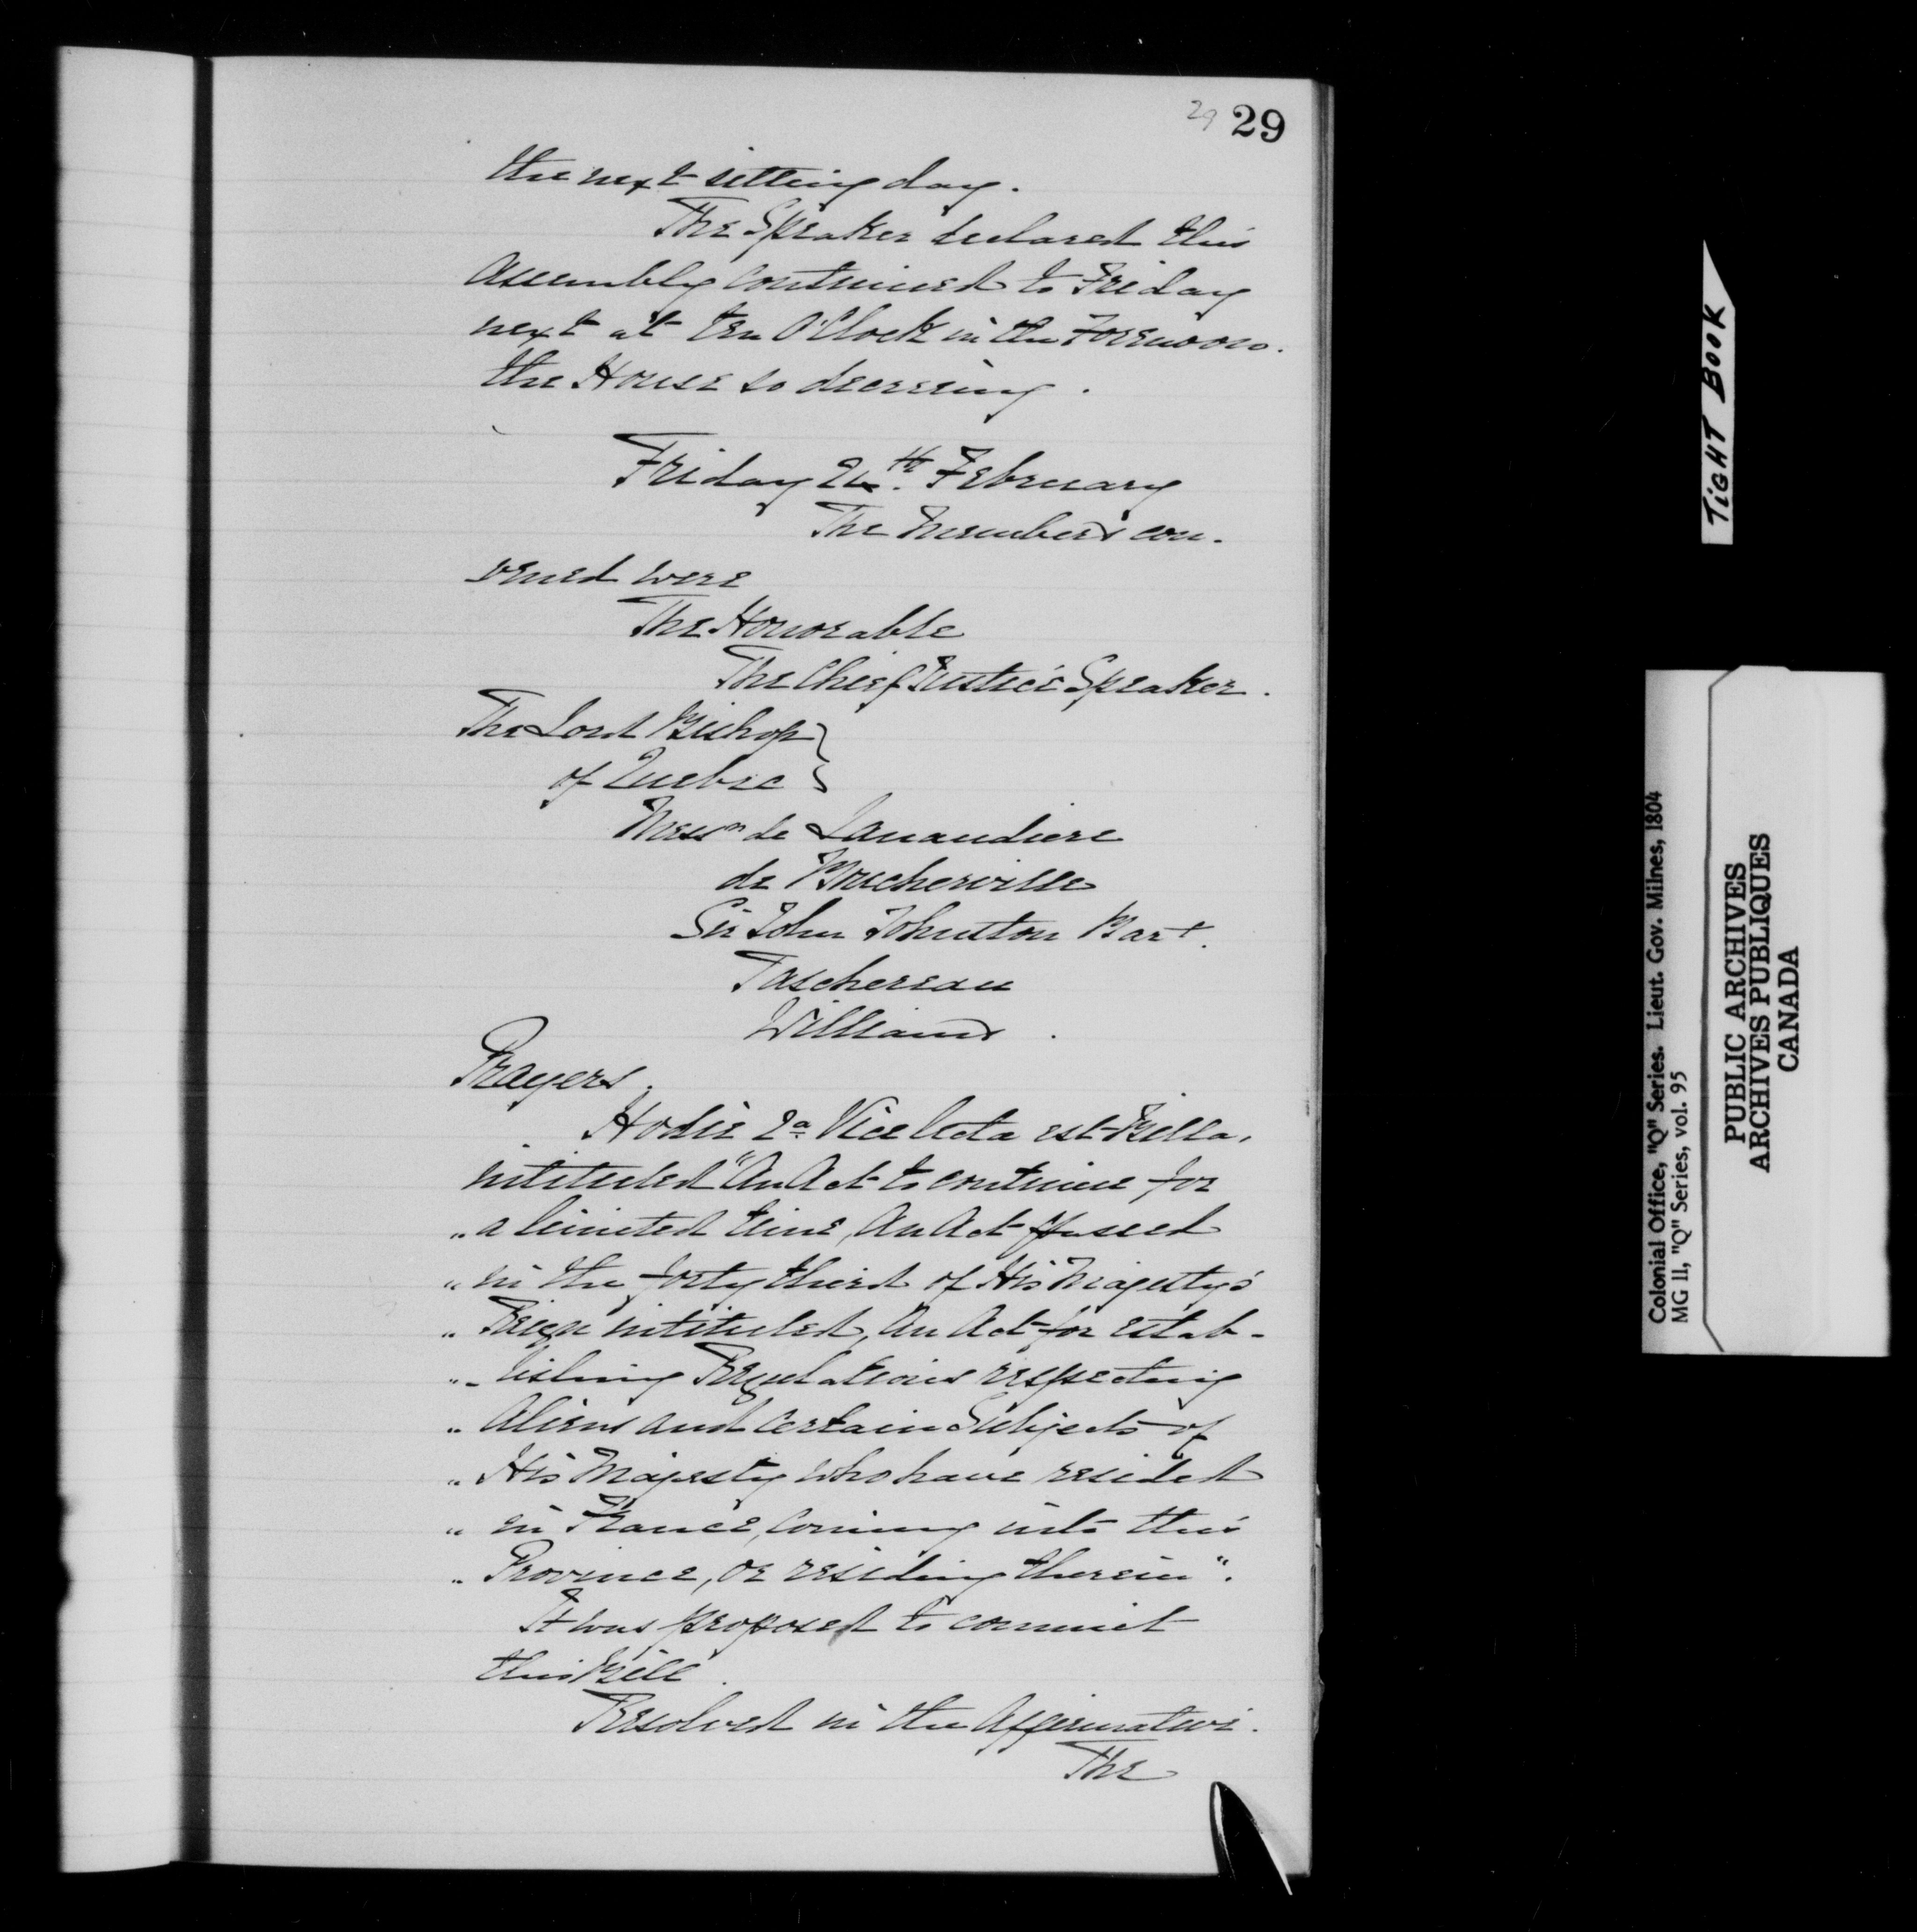 29 29
the next sitting day.
The Speaker declared this
Assembly continued to Friday
next at ten O'Clock in the Forenoon.
the House so decreeing.
Friday 24th. February
The Members con-
vened were
The Honorable
The Chief Justice Speaker.
The Lord Bishop }
of Quebec }
Messrs de Lanaudiere
de Boucherville
Sir John Johnston Bart.
Taschereau
Williams.
Prayers.
Hodie 2a. Vice lecta est Billa,
intituled "An Act to continue for
" a limited time, An Act passed
" in the forty third of His Majesty's
" Reign intituled, An Act for estab-
" lishing Regulations respecting
" Aliens and certain Subjects of
" His Majesty who have resided
" in France, coming into this
" Province, or residing therein".
It was proposed to commit
this Bill.
Resolved in the Affirmative.
The
TIGHT BOOK
Colonial Office, "Q" Series. Lieut. Gov. Milnes, 1804
MG 11, "Q" Series, vol. 95
PUBLIC ARCHIVES
ARCHIVES PUBLIQUES
CANADA